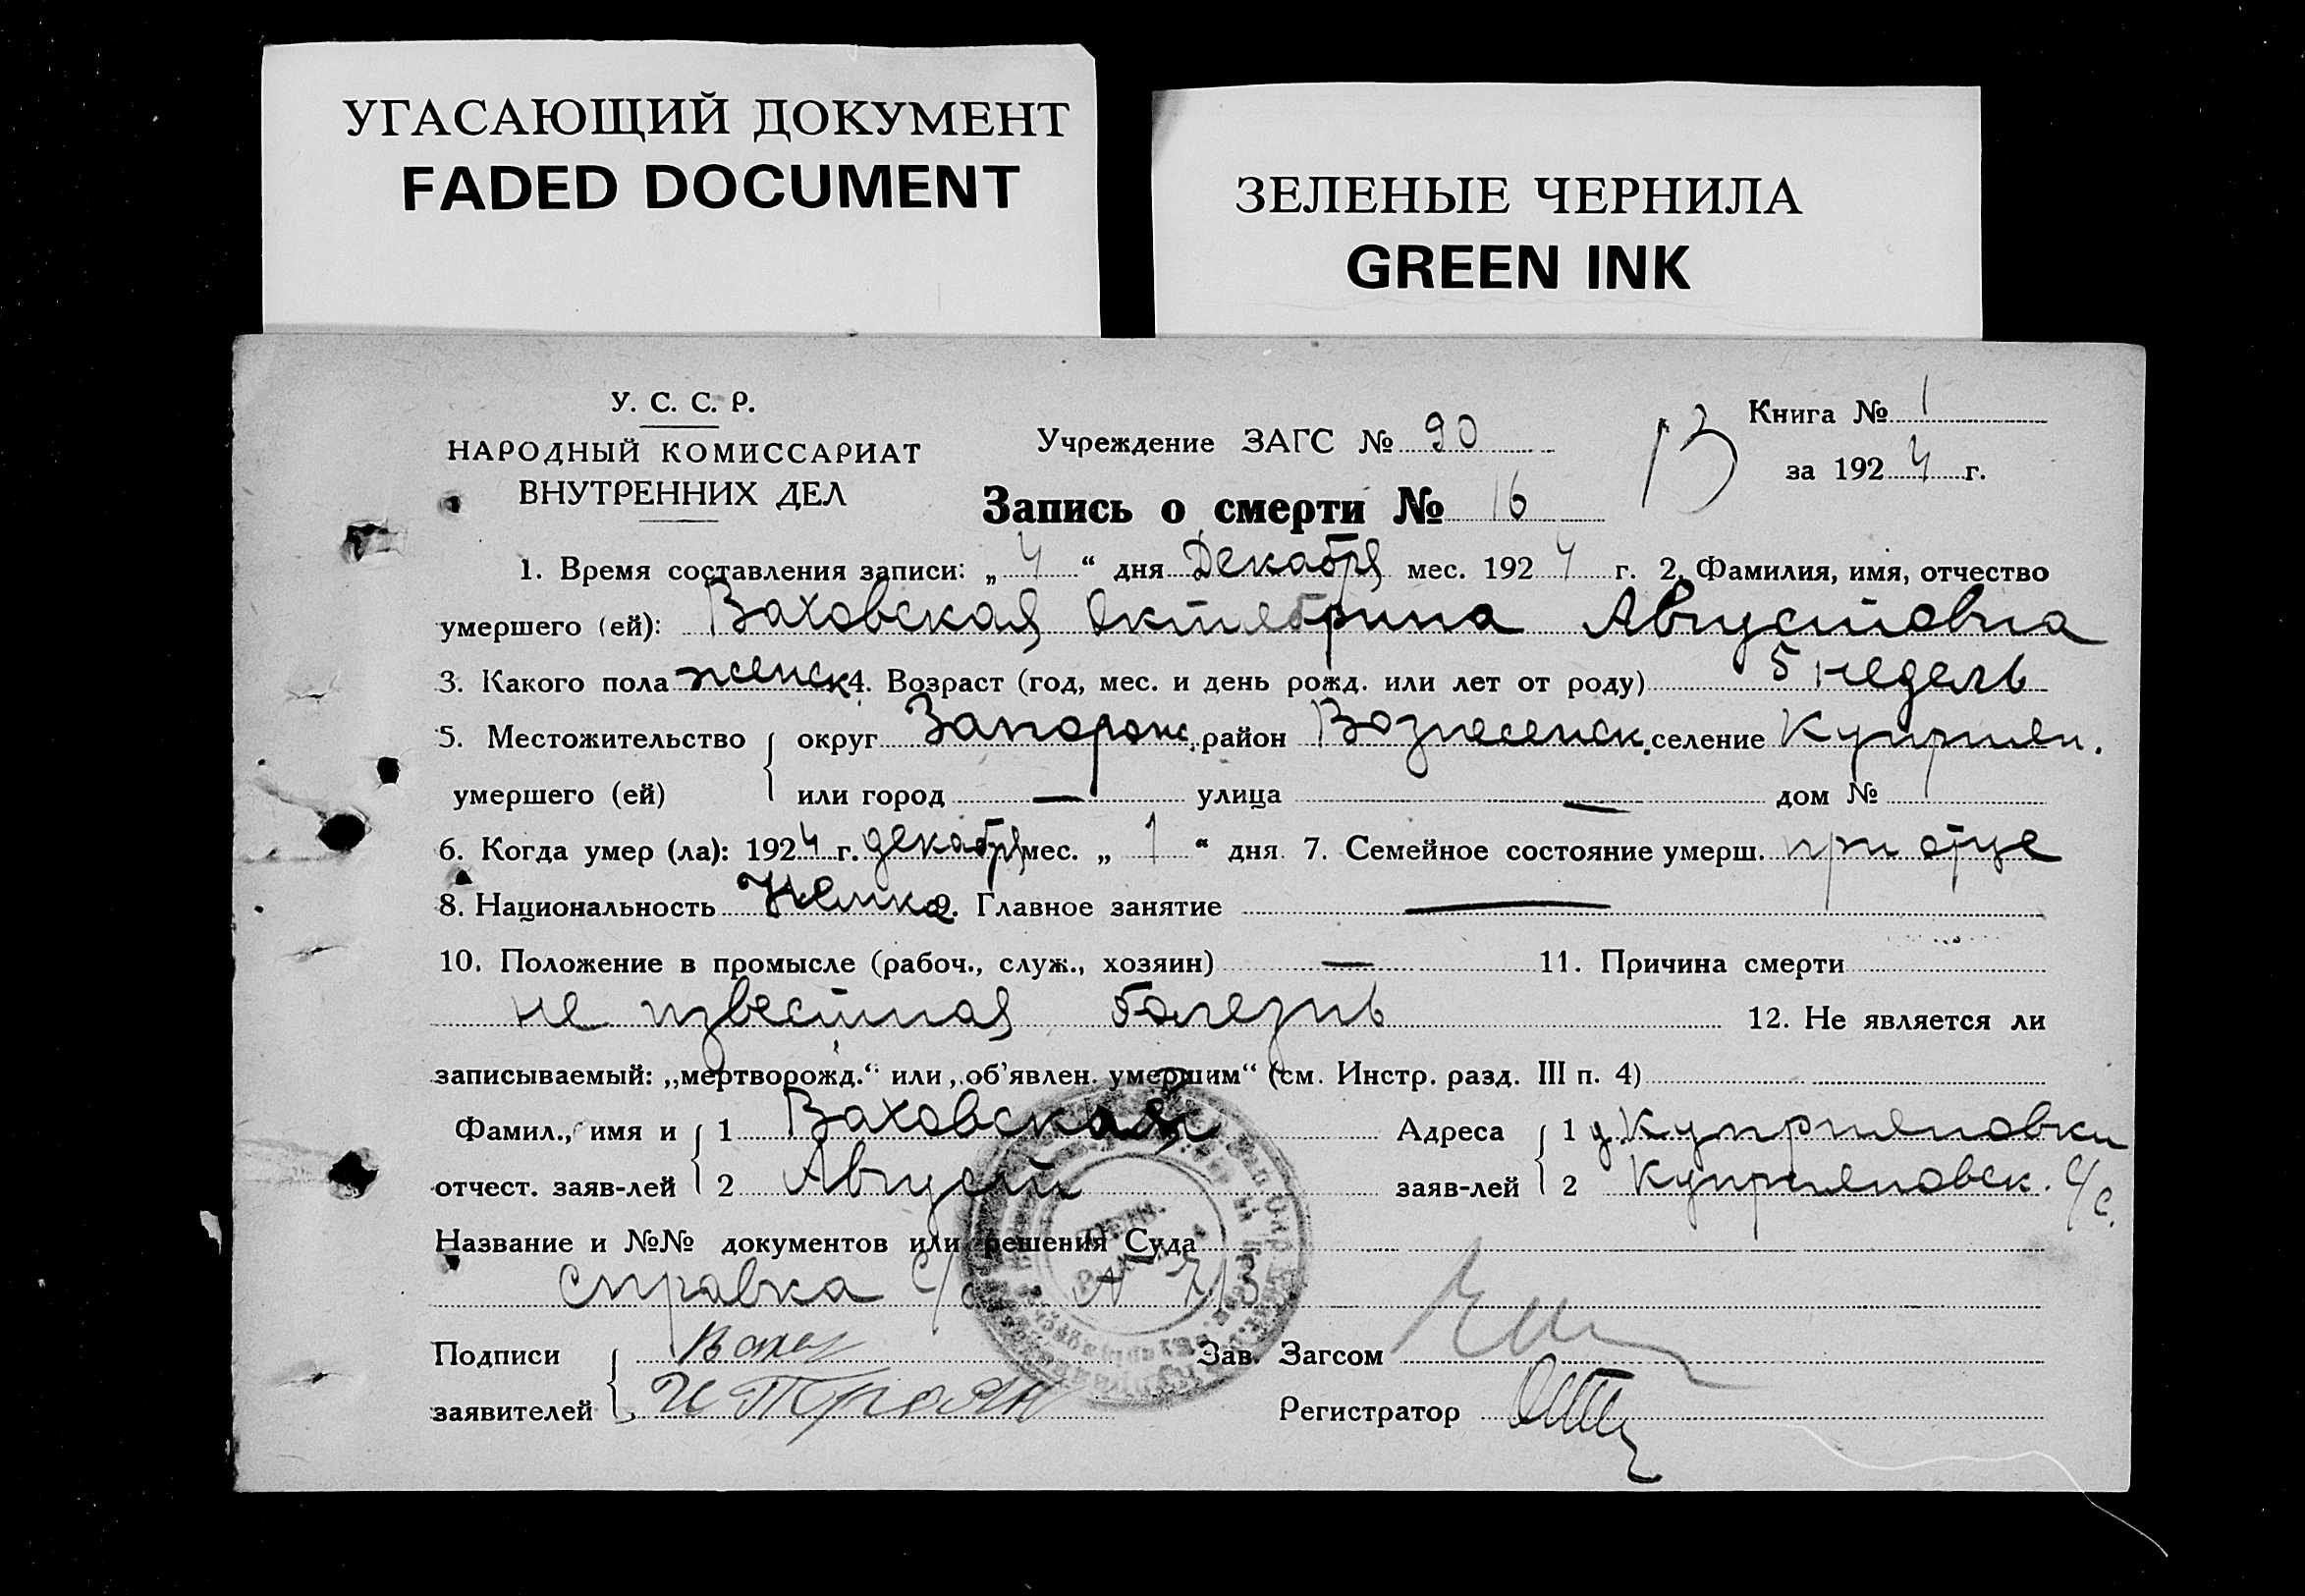 УГАСАЮЩИЙ ДОКУМЕНТ
FADED DOCUMENT
ЗЕЛЕНЫЕ ЧЕРНИЛА
GREEN INK
У. С. С. Р.
НАРОДНЫЙ КОМИССАРИАТ
ВНУТРЕННИХ ДЕЛ
Учреждение ЗАГС № 90
13
Книга № 1
за 1924 г.
Запись о смерти № 16
1. Время составления записи: „ 4 “ дня Декабря мес. 1924 г. 2. Фамилия, имя, отчество
умершего (ей): Ваховская Октябрина Августовна
3. Какого пола женск 4. Возраст (год, мес. и день рожд. или лет от роду) 5 недель
5. Местожительство округ Запорож. район Вознесенск. селение Куприян.
умершего (ей) или город — улица — дом №
6. Когда умер (ла): 1924 г. декабря мес. „ 1 “ дня 7. Семейное состояние умерш. при отце
8. Национальность Немка 9. Главное занятие —
10. Положение в промысле (рабоч., служ., хозяин) — 11. Причина смерти
не известная болезнь 12. Не является ли
записываемый: „мертворожд.“ или „об’явлен. умершим“ (см. Инстр. разд. III п. 4)
Фамил., имя и 1 Ваховская Адреса 1 д. Куприяновки
отчест. заяв-лей 2 Август заяв-лей 2 Куприяновск. с/с.
Название и №№ документов или решения Суда
справка с/с № 713
Подписи Вах Зав. Загсом
заявителей И Троян Регистратор